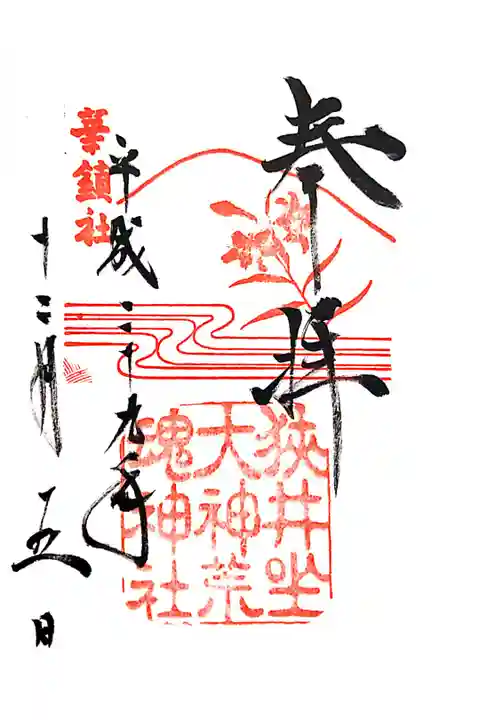 奉拝
狭井坐
大神荒
魂神社
平成二十九年
華鎮社
十二月五日